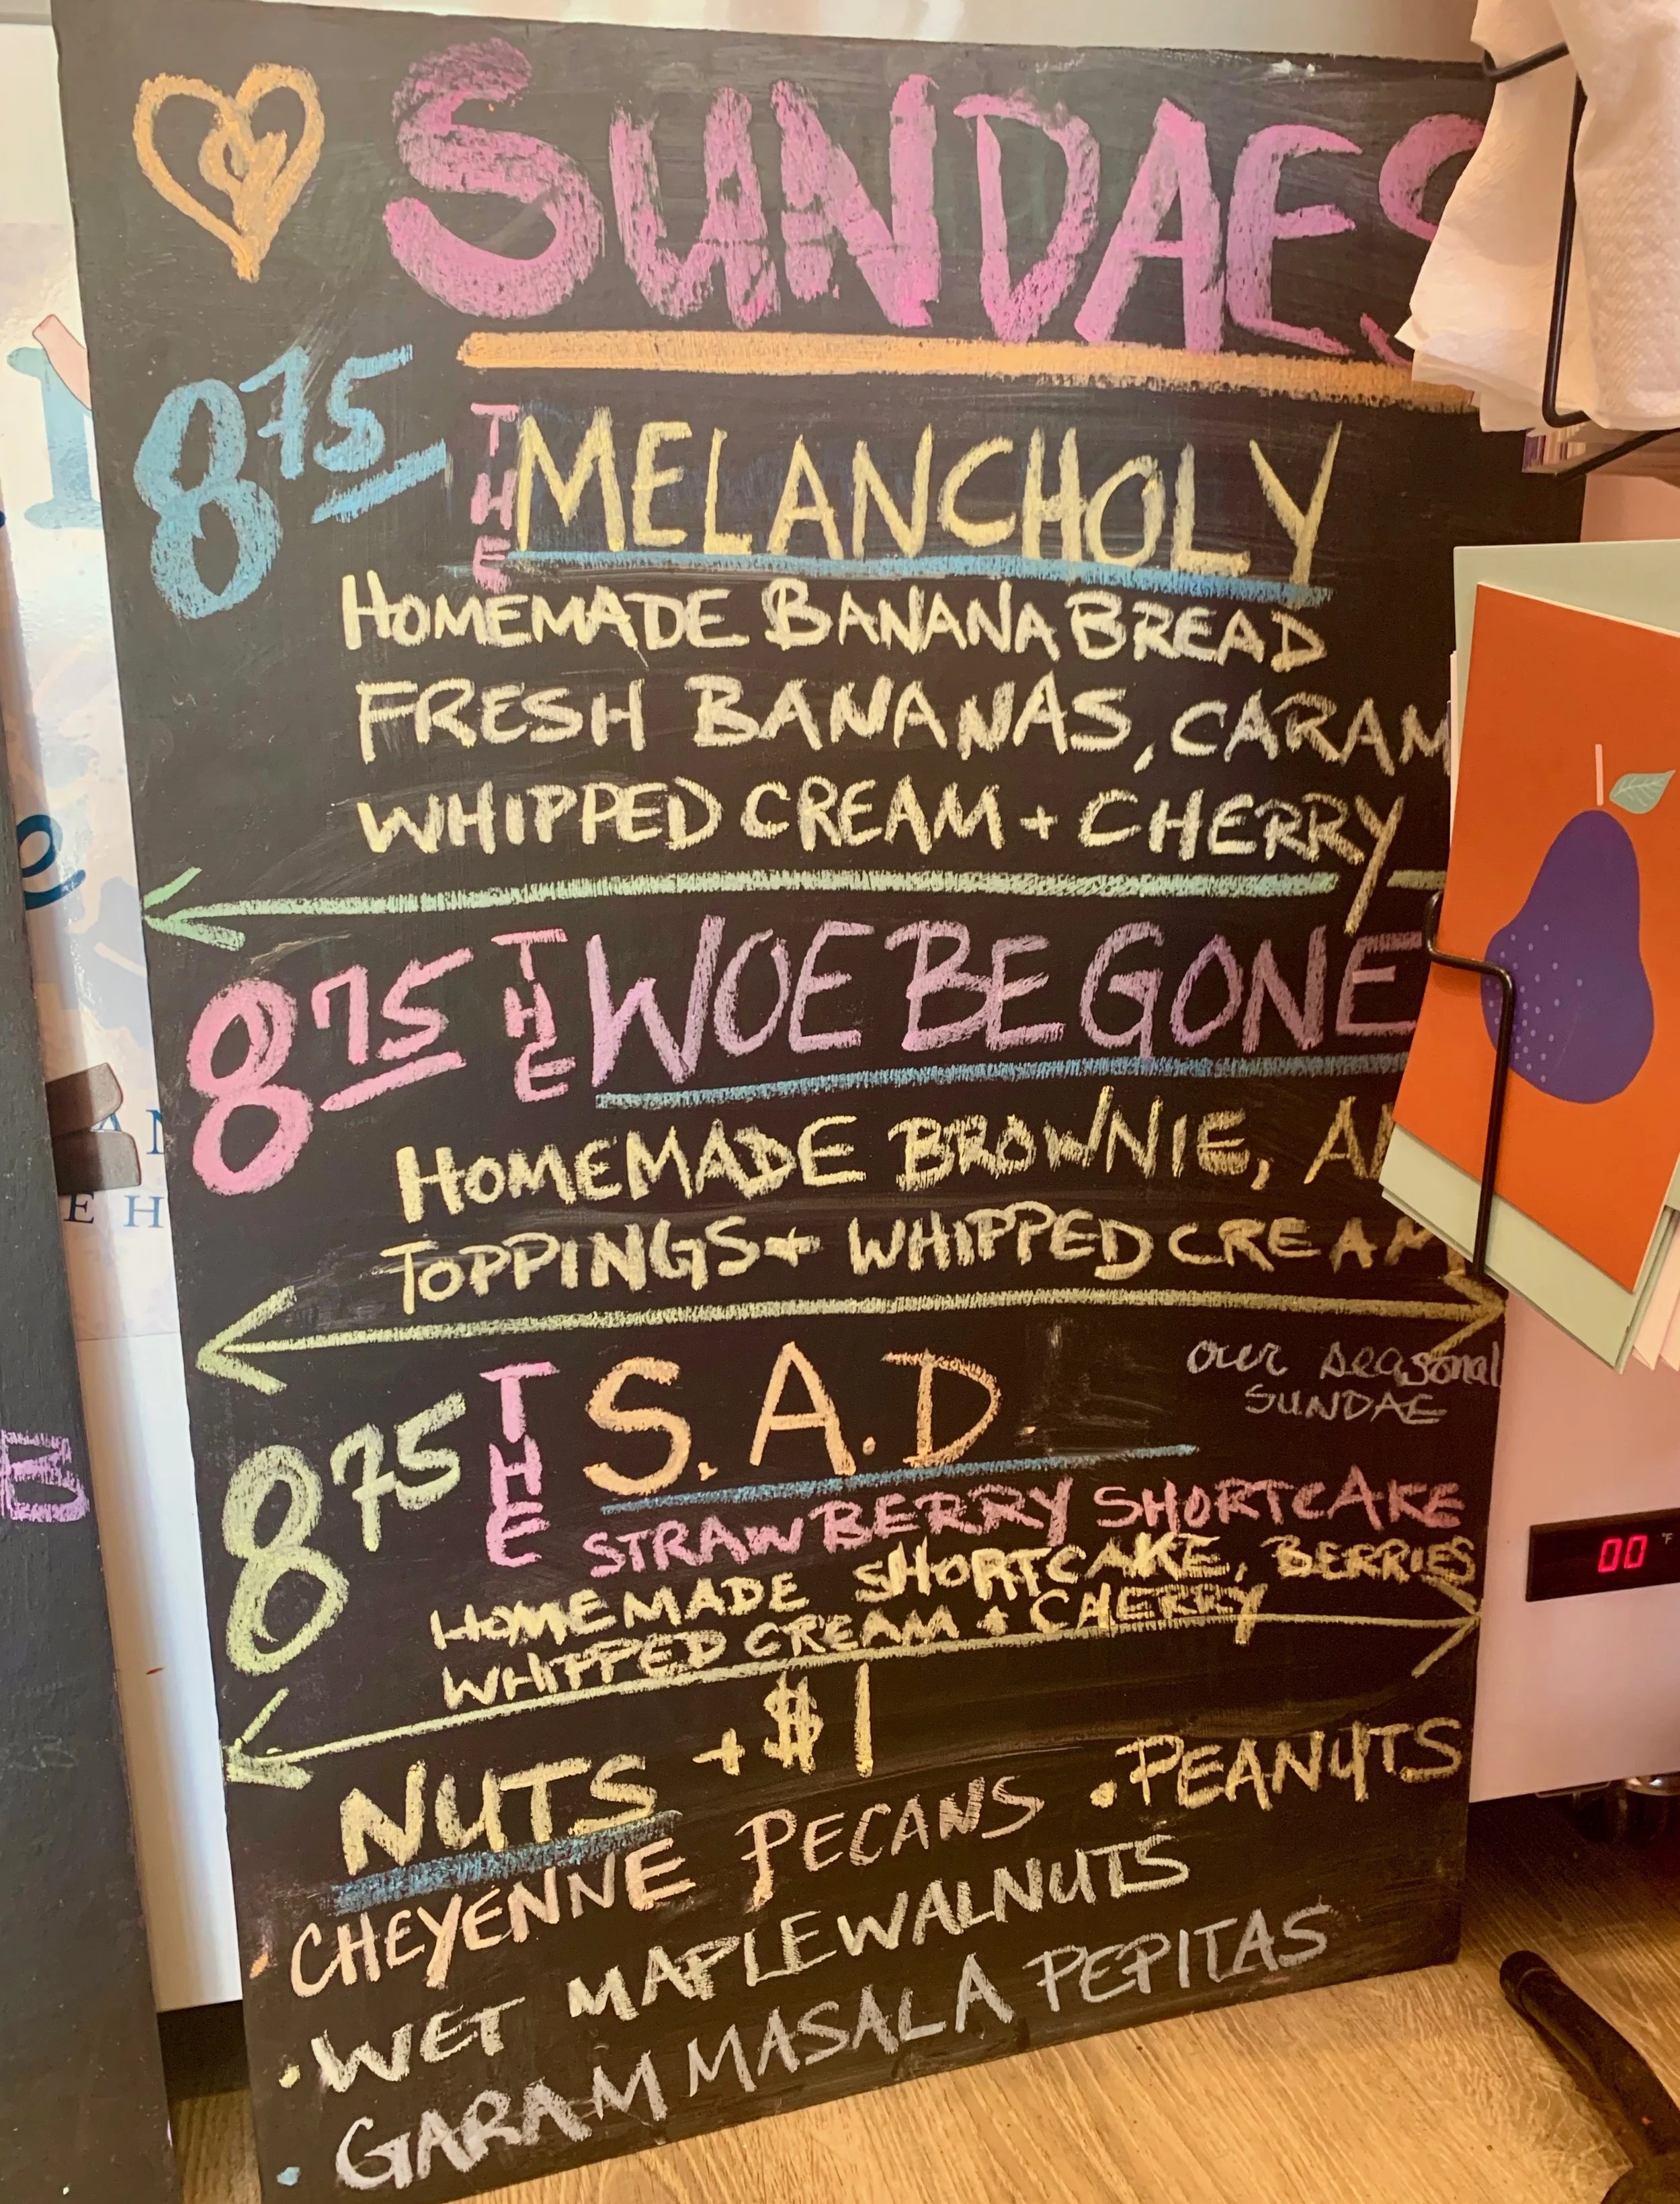 SUNDAES
8 75
THE MELANCHOLY
HOMEMADE BANANA BREAD
FRESH BANANAS, CARAM
WHIPPED CREAM + CHERRY
8 75
THE WOE BE GONE
HOMEMADE BROWNIE,
TOPPINGS + WHIPPED CREAM
our seasonal
SUNDAE
8 75
THE S.A.D
STRAWBERRY SHORTCAKE
HOMEMADE SHORTCAKE, BERRIES
WHIPPED CREAM + CHERRY
NUTS + $1
• CHEYENNE PECANS • PEANUTS
• WET MAPLE WALNUTS
• GARAM MASALA PEPITAS
00 °F